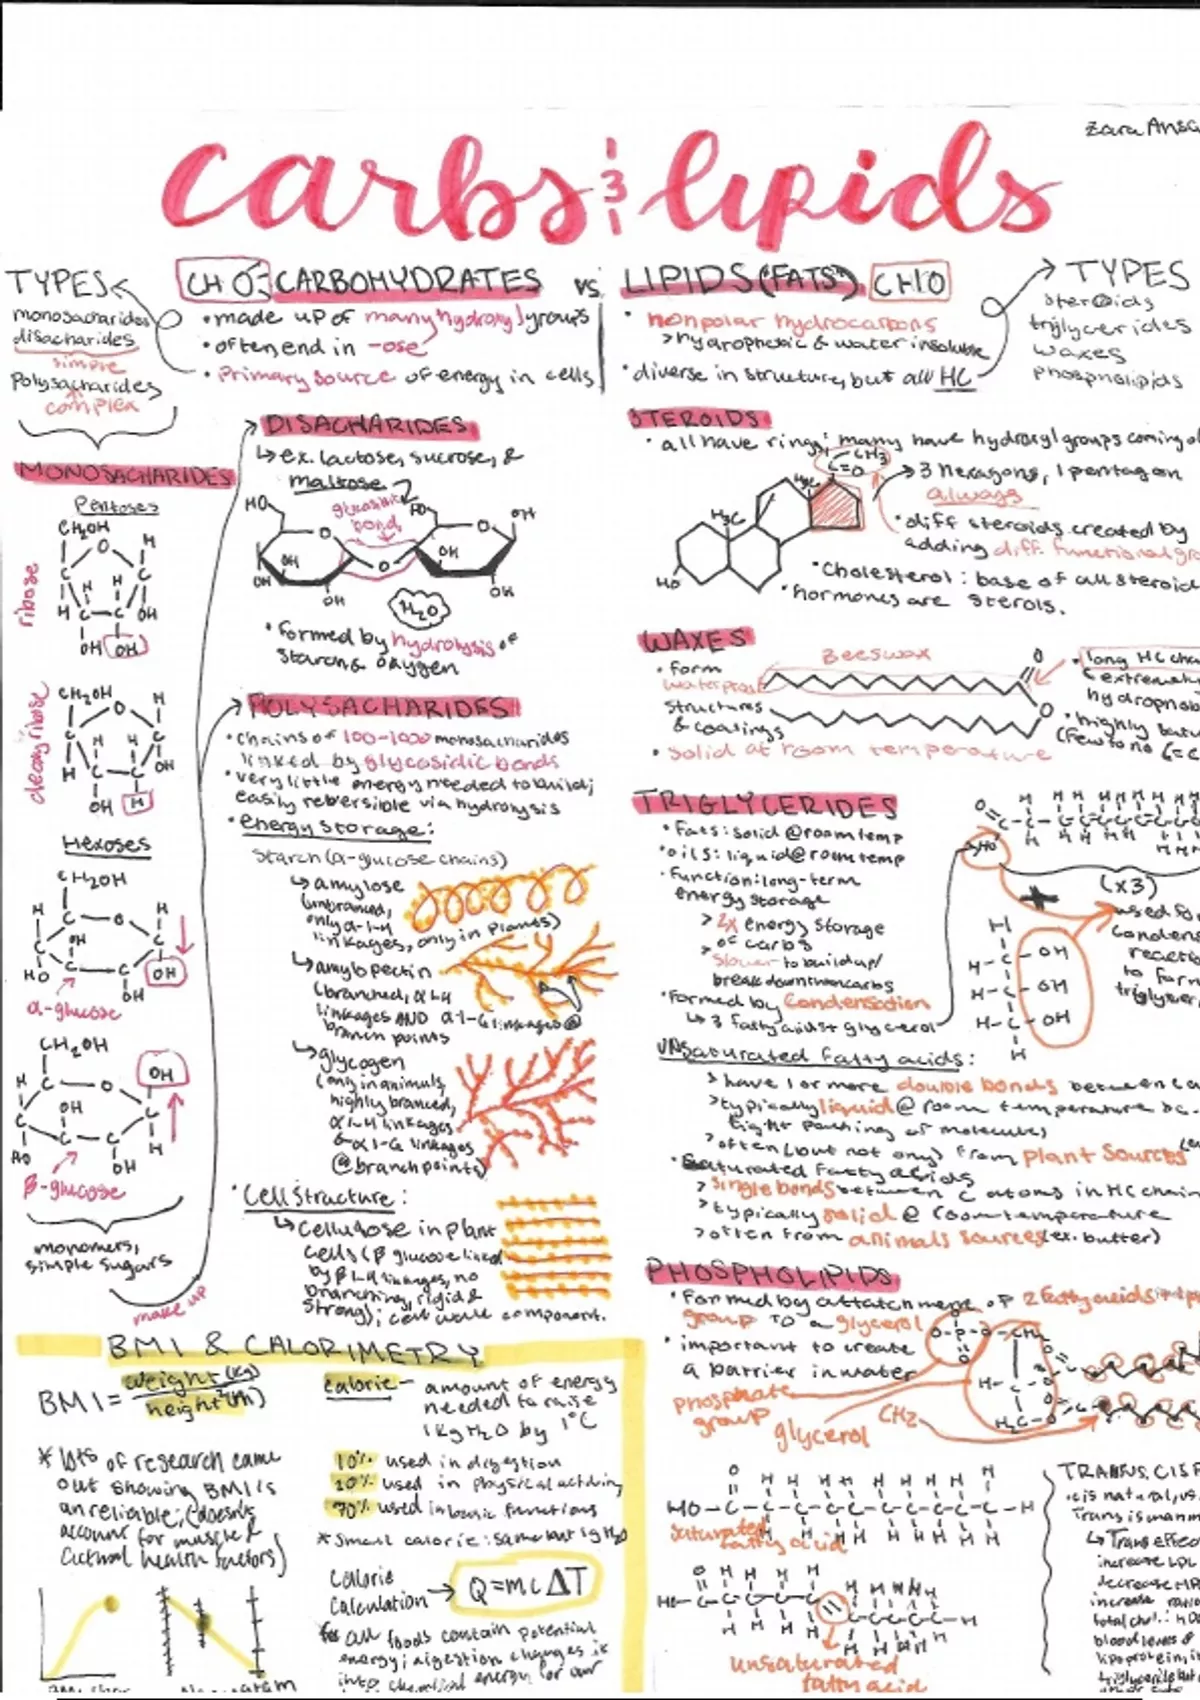 Zara Ansa
carbs & lipids
TYPES
monosacharides
disacharides
simple
Polysacharides
complex
CHO
CARBOHYDRATES
• made up of many hydroxyl groups
• often end in -ose
• Primary source of energy in cells
vs.
LIPIDS (FATS)
CHO
• nonpolar hydrocarbons
> hydrophobic & water insoluble
• diverse in structure, but all HC
TYPES
steroids
triglycerides
waxes
phospholipids
MONOSACHARIDES
Pentoses
ribose
CH₂OH
deoxyribose
CH₂OH
Hexoses
CH₂OH
α-glucose
CH₂OH
β-glucose
monomers,
simple sugars
make up
DISACHARIDES
↳ ex. lactose, sucrose, &
maltose
glycosidic
bond
H₂O
• formed by hydrolysis of
oxygen
POLYSACHARIDES
• chains of 100-1000 monosaccharides
linked by glycosidic bonds
• very little energy needed to build;
easily reversible via hydrolysis
• energy storage:
starch (α-glucose chains)
↳ amylose
(unbranced,
only α-1-4
linkages, only in plants)
↳ amylopectin
(branched, α 1-4
linkages AND α 1-6 linkages @
branch points
↳ glycogen
(only in animals,
highly branced,
α 1-4 linkages
& α 1-6 linkages
@ branch points)
• Cell Structure:
↳ cellulose in plant
cells (β glucose linked
by β 1-4 linkages, no
branching, rigid &
strong); cell wall component.
STEROIDS
• all have rings; many have hydroxyl groups coming o
CH₃
C=O
H₃C
H₃C
HO
→ 3 hexagons, 1 pentagon
always
• diff steroids created by
adding diff. functional gro
• Cholesterol: base of all steroid
• hormones are sterols.
WAXES
• form
waterproof
structures
& coatings
• solid at room temperature
Beeswax
• long HC chai
(extremely
hydrophob
• highly
(few to no C=C
TRIGLYCERIDES
• Fats: solid @ room temp
• oils: liquid @ room temp
• Function: long-term
energy storage
> 2x energy storage
of carbs
> slower to build up/
break down than carbs
• Formed by Condensation
↳ 3 fatty acids + glycerol
(x3)
used fo
condens
reacti
to form
triglycer
unsaturated fatty acids:
> have 1 or more double bonds between C a
> typically liquid @ room temperature
tight packing of molecules
> often (but not only) from plant sources
• Saturated fatty acids
> single bonds between C atoms in HC chain
> typically solid @ room temperature
> often from animals sources (ex. butter)
PHOSPHOLIPIDS
• Formed by attatchment of 2 fatty acids + 1
group to a glycerol
• important to create
a barrier in water
phosphate
group
glycerol
CH₂
saturated
fatty acid
unsaturated
fatty acid
TRANS VS. CIS
cis is natural, vs.
Trans is manm
↳ Trans
increase LDL
decrease
increase
total chol.:
blood levels of
lipoprotein, i
BMI & CALORIMETRY
BMI = weight (kg)
height²(m)
* lots of research came
out showing BMI is
unreliable; (doesn't
account for muscle &
actual health factors)
calorie - amount of energy
needed to raise
1kg H₂O by 1°C
10% used in digestion
20% used in physical activity
70% used in basic functions
* small calorie: same but 1g H₂O
Calorie
Calculation → Q=mcΔT
all foods contain potential
energy; digestion changes it
into chemical energy for our